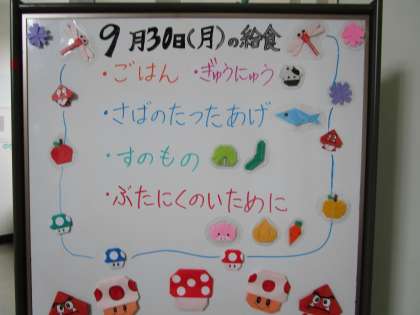 9月30日(月)の給食
・ごはん ・ぎゅうにゅう
・さばのたったあげ
・すのもの
・ぶたにくのいために